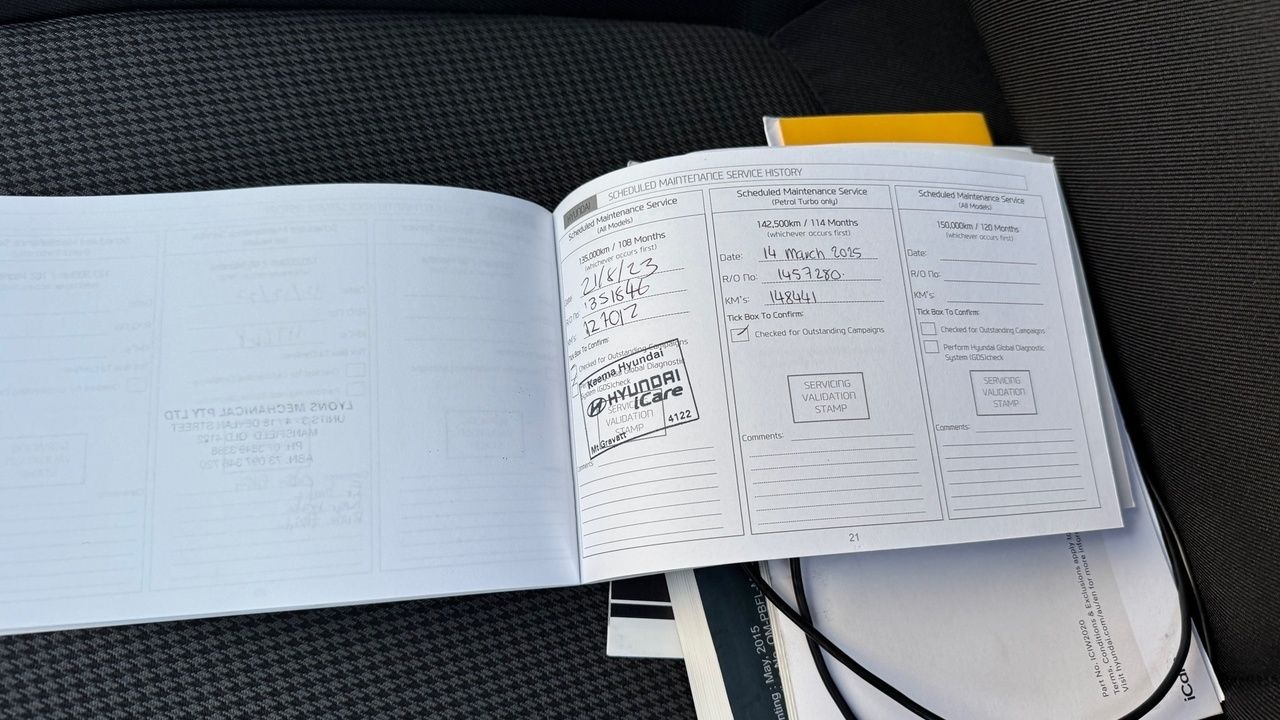 SCHEDULED MAINTENANCE SERVICE HISTORY
Scheduled Maintenance Service
(All Models)
135,000km / 108 Months
(whichever occurs first)
21/8/23
1351646
127012
Checked for Outstanding Campaigns
Keema Hyundai
HYUNDAI
iCare
SERVICING
VALIDATION
STAMP
Mt Gravatt 4122
Scheduled Maintenance Service
(Petrol Turbo only)
142,500km / 114 Months
(whichever occurs first)
Date: 14 March 2025
R/O No: 1457280
KM's: 148441
Tick Box To Confirm:
Checked for Outstanding Campaigns
SERVICING
VALIDATION
STAMP
Comments:
Scheduled Maintenance Service
(All Models)
150,000km / 120 Months
(whichever occurs first)
Date:
R/O No:
KM's:
Tick Box To Confirm:
Checked for Outstanding Campaigns
Perform Hyundai Global Diagnostic
System (GDS)check
SERVICING
VALIDATION
STAMP
Comments:
21
LYONS MECHANICAL PTY LTD
MANSFIELD QLD 4122
nting : May. 2015
Part No. ICIW2020
Terms, Conditions & Exclusions apply
Visit hyundai.com/au/en for more